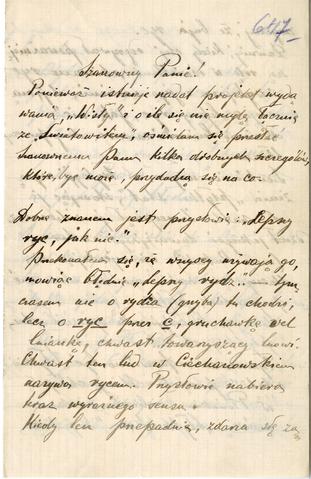 647
Szanowny Panie!
Ponieważ istnieje nadal projekt wyda
wania „Wisły” i o ile się nie mylę łącznie
ze „Światowitem”, ośmielam się przesłać
Szanownemu Panu kilka drobnych szczegółów,
które, być może, przydadzą się na co.
Dobrze znanem jest przysłowie „Lepszy
ryc, jak nic.”
Przekonałem się, że wszyscy używają go,
mówiąc błędnie „lepszy rydz..” — tym
czasem nie o rydza (grzyb) tu chodzi,
lecz o ryc przez c, gruchawkę vel
lniankę, chwast towarzyszący lnowi.
Chwast ten lud w Ciechanowskiem
nazywa rycem. Przysłowie nabiera
teraz wyraźnego sensu.
Kiedy len przepadnie, zdarza się za